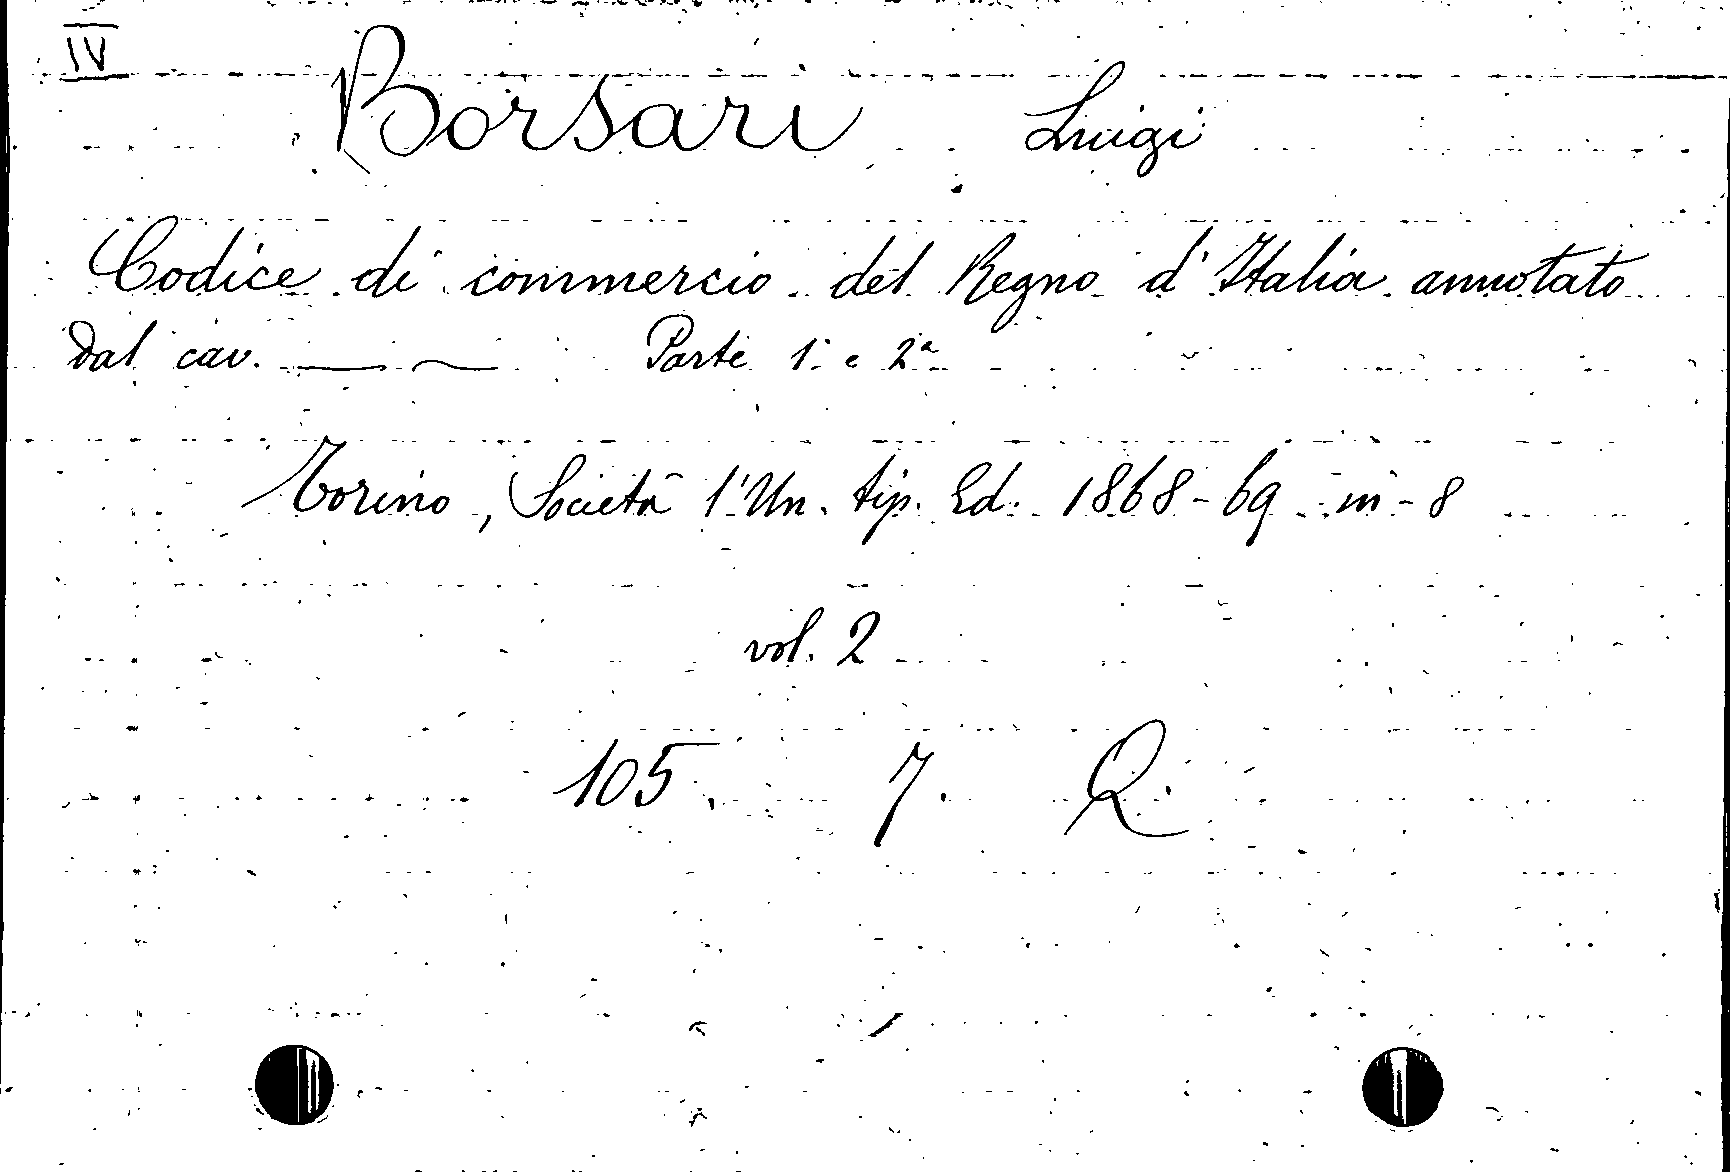 IV
Borsari Luigi
Codice di commercio del Regno d'Italia annotato
dal cav. —— —— Parte 1ª e 2ª
Torino, Società l'Un. tip. Ed. 1868-69 in-8
vol. 2
105. 7. Q.